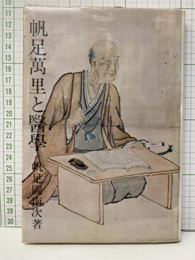 帆足萬里と醫學
帆足圖南次著